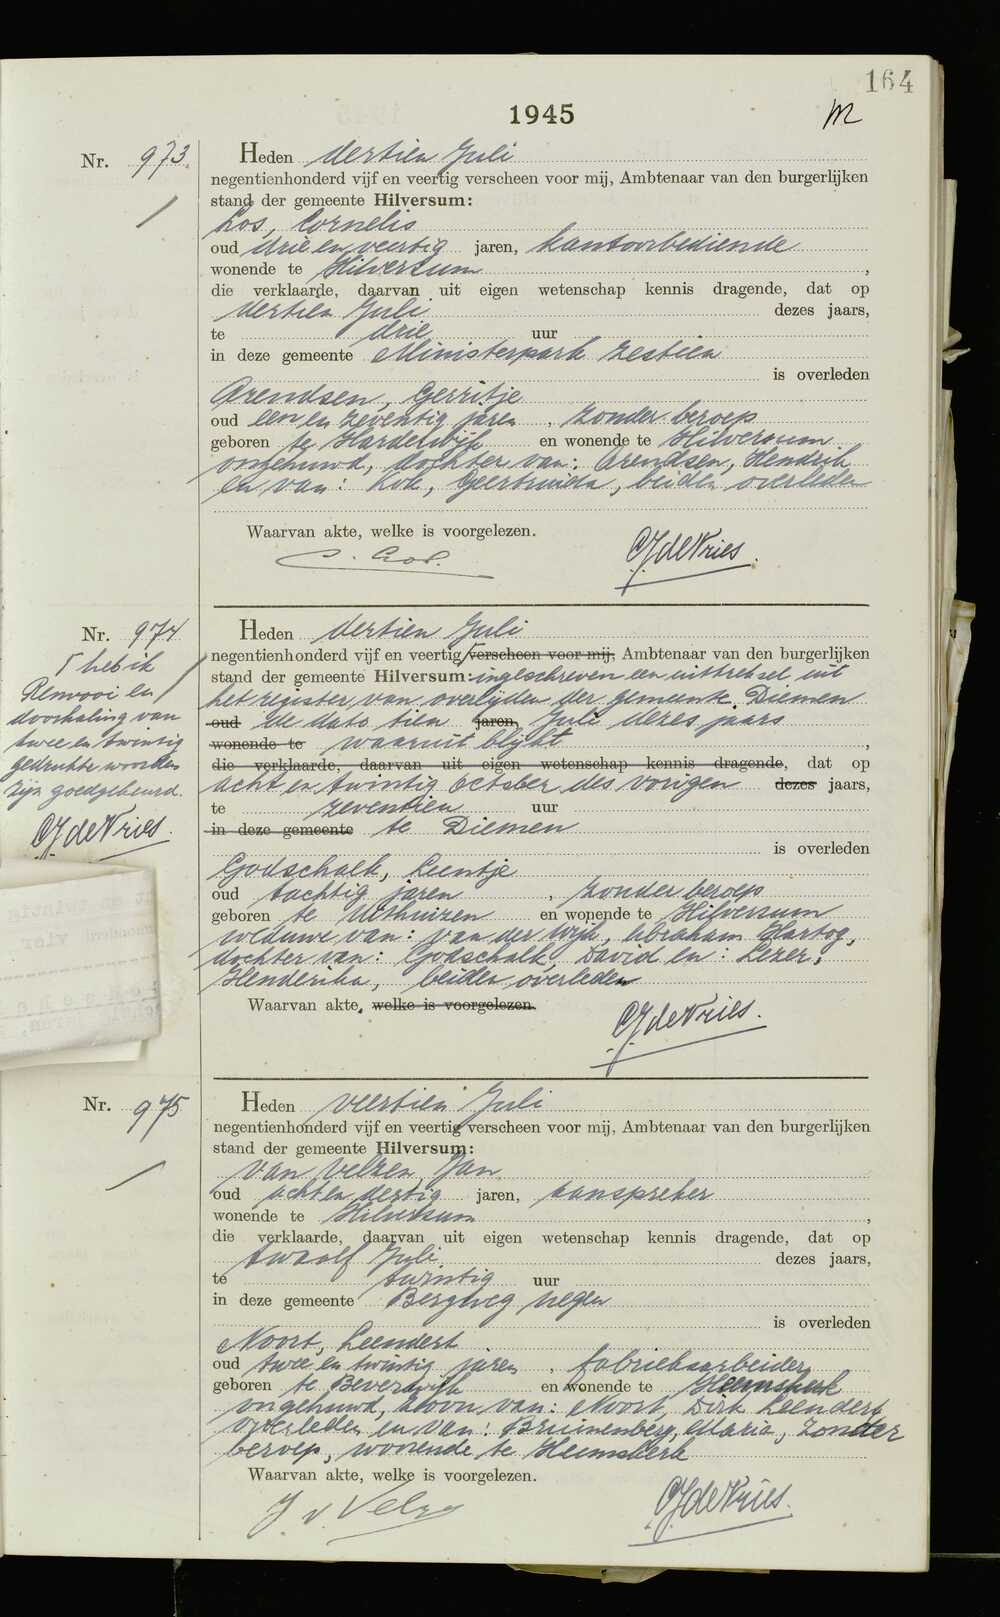 164
1945
M
Nr. 973.
Heden dertien Juli
negentienhonderd vijf en veertig verscheen voor mij, Ambtenaar van den burgerlijken
stand der gemeente Hilversum:
Los, Cornelis
oud drie en veertig jaren, kantoorbediende
wonende te Hilversum,
die verklaarde, daarvan uit eigen wetenschap kennis dragende, dat op
dertien Juli dezes jaars,
te drie uur
in deze gemeente Ministerpark zestien
is overleden
Arendsen, Gerritje
oud een en zeventig jaren, zonder beroep
geboren te Harderwijk en wonende te Hilversum
ongehuwd, dochter van: Arendsen, Hendrik
en van: Kok, Geertruida, beiden overleden
Waarvan akte, welke is voorgelezen.
C. Los.
CJdeVries.
Nr. 974
Γ heb ik
Renvooi en
doorhaling van
twee en twintig
gedrukte woorden
zijn goedgekeurd.
CJdeVries.
Heden dertien Juli
negentienhonderd vijf en veertig Γ verscheen voor mij, Ambtenaar van den burgerlijken
stand der gemeente Hilversum: ingeschreven een uittreksel uit
het register van overlijden der gemeente Diemen
oud de dato tien jaren, Juli dezes jaars
wonende te waaruit blijkt,
die verklaarde, daarvan uit eigen wetenschap kennis dragende, dat op
acht en twintig october des vorigen dezes jaars,
te zeventien uur
in deze gemeente te Diemen
is overleden
Godschalk, Leentje
oud tachtig jaren, zonder beroep
geboren te Uithuizen en wonende te Hilversum
weduwe van: van der Wijk, Abraham Hartog,
dochter van: Godschalk, David en: Lezer,
Henderika, beiden overleden
Waarvan akte, welke is voorgelezen.
CJdeVries.
Nr. 975
Heden veertien Juli
negentienhonderd vijf en veertig verscheen voor mij, Ambtenaar van den burgerlijken
stand der gemeente Hilversum:
van Velzen, Jan
oud acht en dertig jaren, aanspreker
wonende te Hilversum,
die verklaarde, daarvan uit eigen wetenschap kennis dragende, dat op
twaalf Juli dezes jaars,
te twintig uur
in deze gemeente Bergweg negen
is overleden
Noort, Leendert
oud twee en twintig jaren, fabrieksarbeider
geboren te Beverwijk en wonende te Heemskerk
ongehuwd, zoon van: Noort, Dirk Leendert
overleden en van: Bruinenberg, Maria, zonder
beroep, wonende te Heemskerk
Waarvan akte, welke is voorgelezen.
J v. Velzen
CJdeVries.